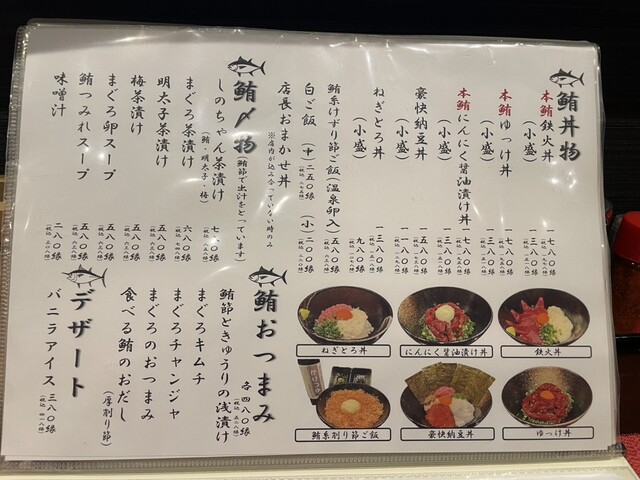 鮪丼物
本鮪鉄火丼 一七八〇縁
(小盛) 一三八〇縁
本鮪ゆっけ丼 一七八〇縁
(小盛) 一三八〇縁
本鮪にんにく醤油漬け丼 一七八〇縁
(小盛) 一三八〇縁
豪快納豆丼 一五八〇縁
(小盛) 一一八〇縁
ねぎとろ丼 一三八〇縁
(小盛) 九八〇縁
鮪糸けずり節ご飯(温泉卵入) 五八〇縁
白ご飯 (中)二五〇縁 (小)二〇〇縁
店長おまかせ丼
※店内が込み合っていない時のみ
鮪〆物
(鮪節で出汁をとっています)
しのちゃん茶漬け
(鮪・明太子・梅)
七八〇縁
まぐろ茶漬け 六八〇縁
明太子茶漬け 五八〇縁
梅茶漬け 五八〇縁
まぐろ卵スープ 五八〇縁
鮪つみれスープ 五八〇縁
味噌汁 二八〇縁
鮪おつまみ
各四八〇縁
(税込 五二八縁)
鮪節ときゅうりの浅漬け
まぐろキムチ
まぐろチャンジャ
まぐろのおつまみ
食べる鮪のおだし
(厚削り節)
デザート
バニラアイス 三八〇縁
(税込 四一八縁)
ねぎとろ丼
にんにく醤油漬け丼
鉄火丼
鮪糸削り節ご飯
豪快納豆丼
ゆっけ丼